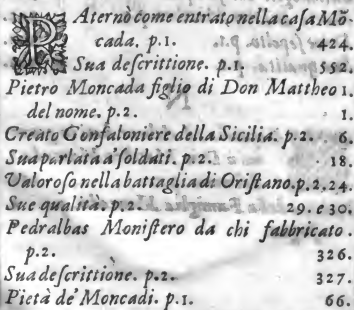 PAternò come entrato nella casa Mõ
cada. p.1. 424.
Sua descrittione. p.1. 552.
Pietro Moncada figlio di Don Mattheo 1.
del nome. p.2. 1.
Creato Gonfaloniere della Sicilia. p.2. 6.
Sua parlata a'soldati. p.2. 18.
Valoroso nella battaglia di Oristano.p.2.24.
Sue qualità. p.2. 29. e 30.
Pedralbas Monistero da chi fabbricato.
p.2. 326.
Sua descrittione. p.2. 327.
Pietà de'Moncadi. p.1. 66.